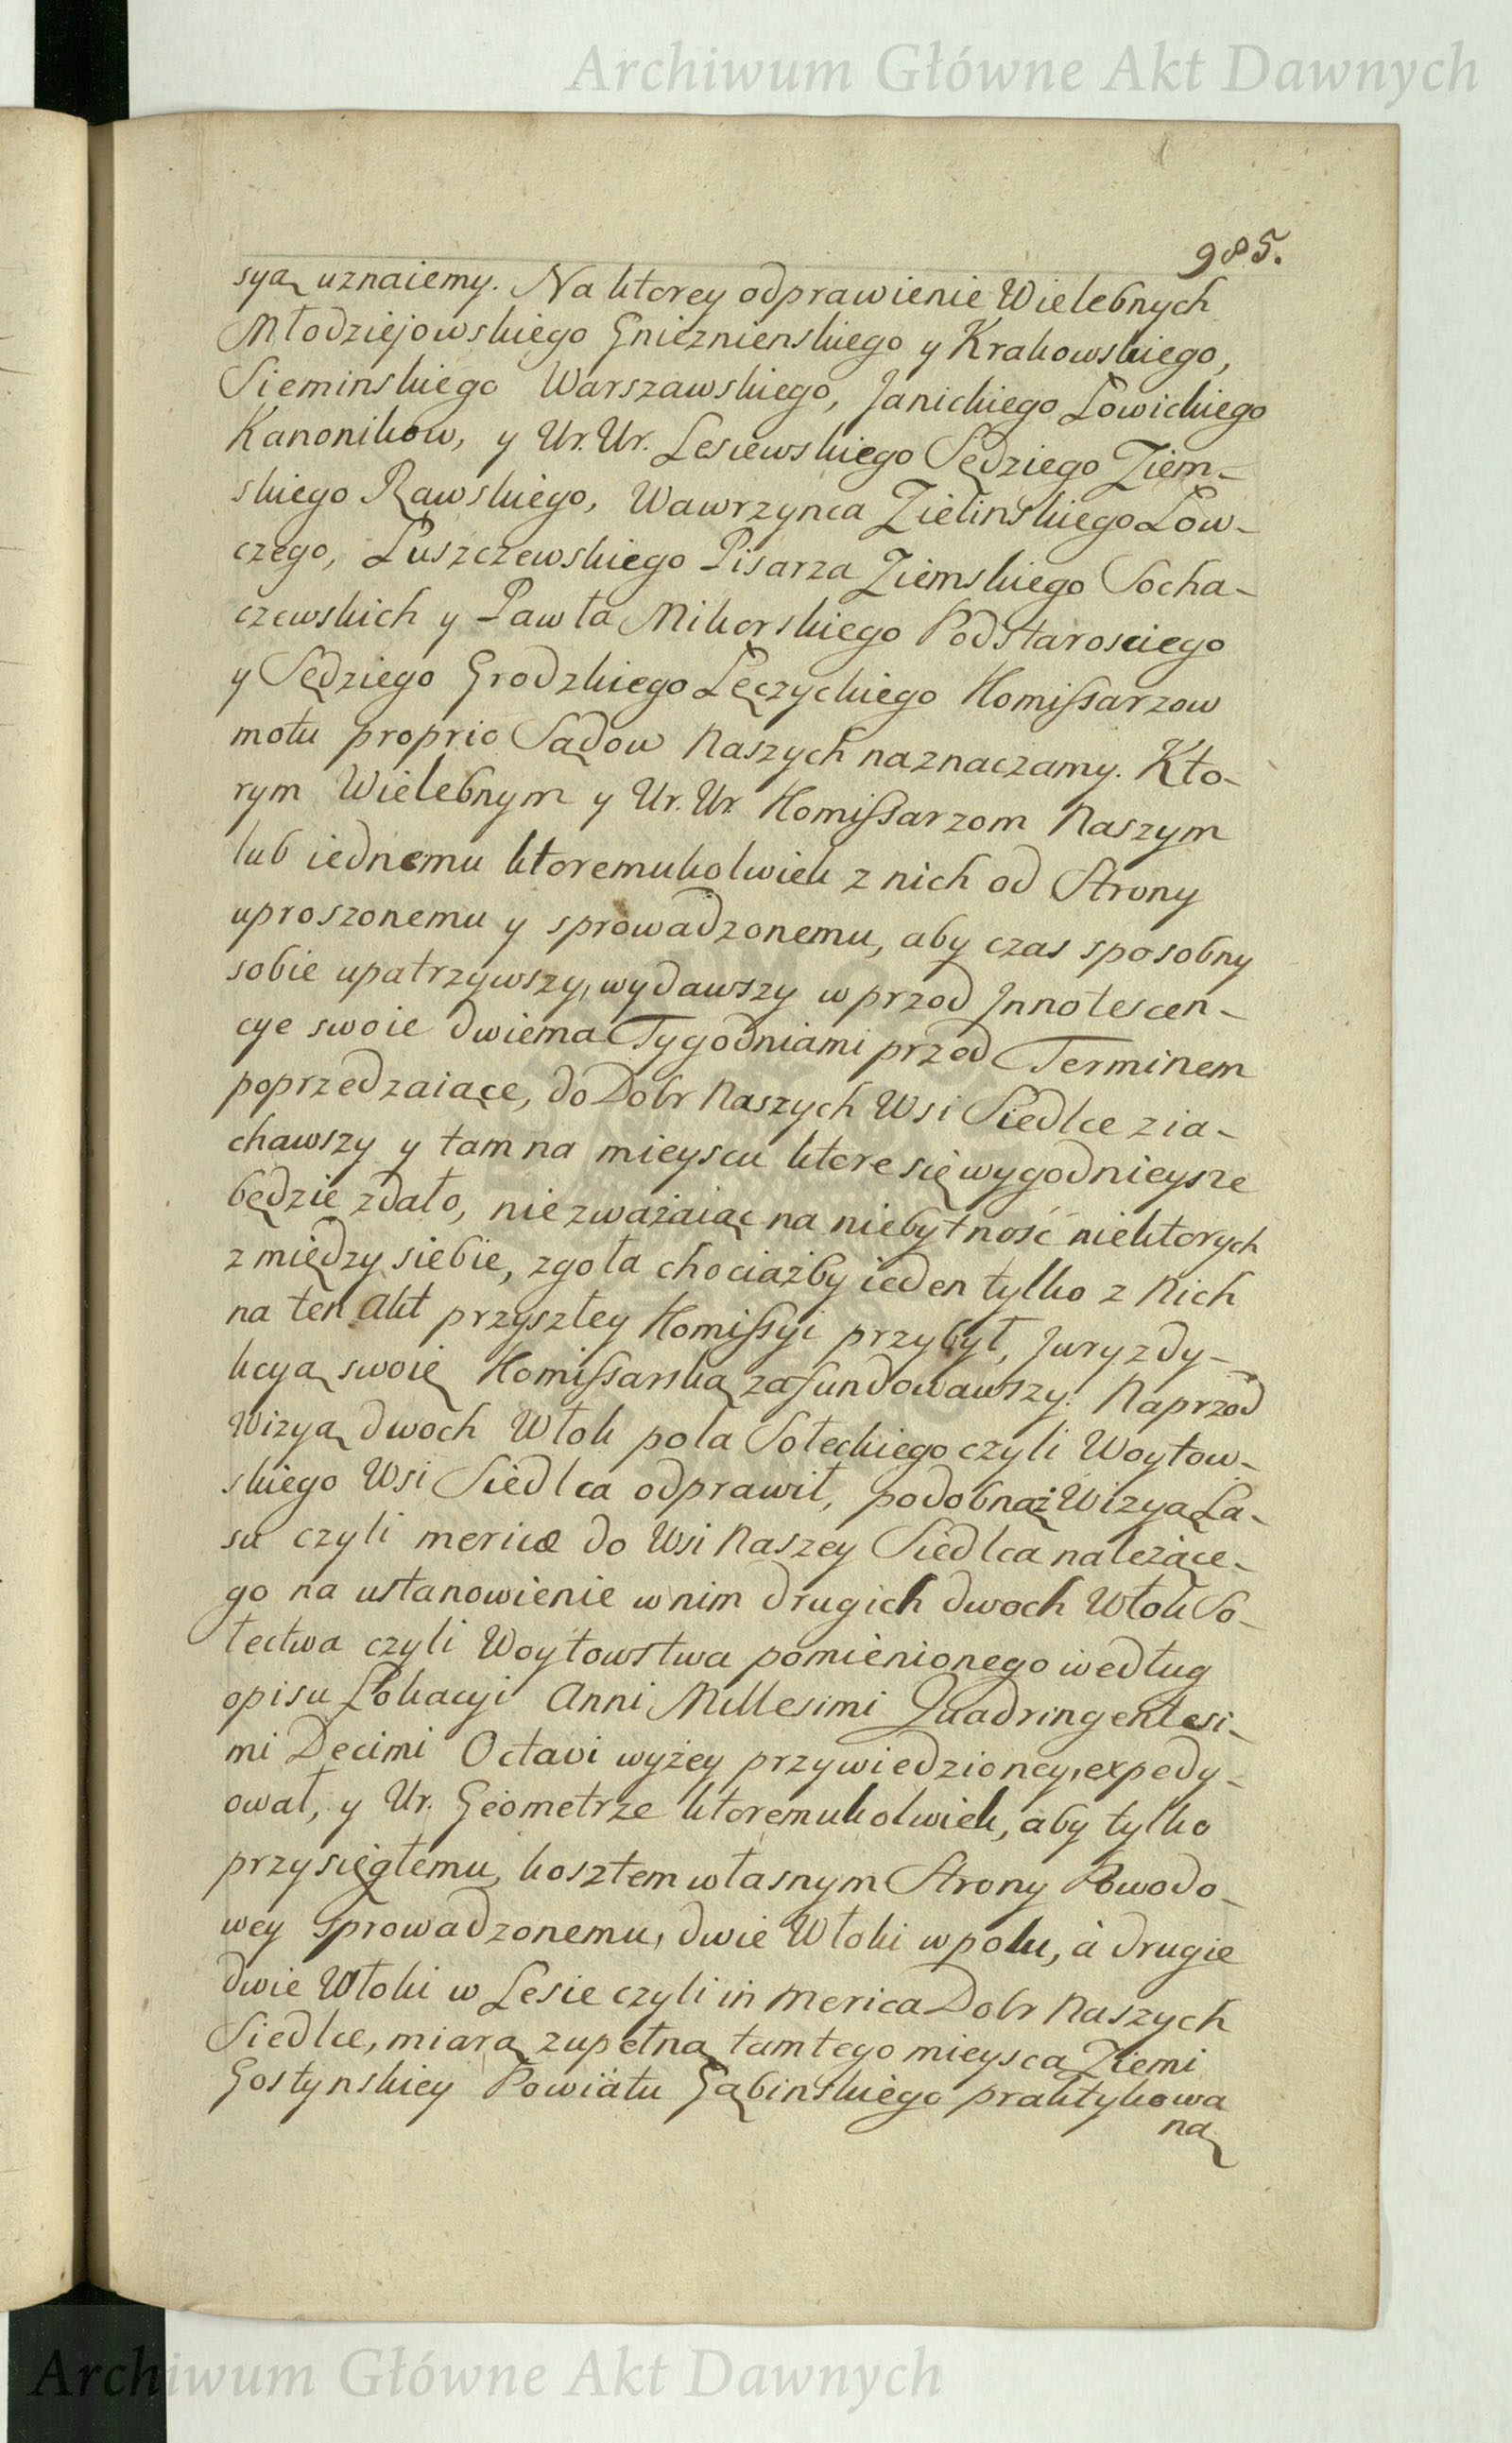 Archiwum Główne Akt Dawnych
985.
syą uznaiemy. Na ktorey odprawienie Wielebnych
Młodziejowskiego Gnieznienskiego y Krakowskiego,
Sieminskiego Warszawskiego, Janickiego Łowickiego
Kanonikow, y Ur. Ur. Lesiewskiego Sędziego Ziem-
skiego Rawskiego, Wawrzynca Zielinskiego Łow-
czego, Łuszczewskiego Pisarza Ziemskiego Socha-
czewskich y Pawła Mikorskiego Podstarosciego
y Sędziego Grodzkiego Łęczyckiego Kommissarzow
motu proprio Sądow Naszych naznaczamy. Kto-
rym Wielebnym y Ur. Ur. Komissarzom Naszym
lub iednemu ktoremukolwiek z nich od Strony
uproszonemu y sprowadzonemu, aby czas sposobny
sobie upatrzywszy, wydawszy wprzod Innotescen-
cye swoie dwiema Tygodniami przed Terminem
poprzedzaiące, do Dobr Naszych Wsi Siedlce zia-
chawszy y tam na mieyscu ktore się wygodnieysze
będzie zdało, nie zważaiąc na niebytność niektorych
z między siebie, zgoła chociażby ieden tylko z Nich
na ten Akt przyszłey Komissyi przybył, Juryzdy-
kcyą swoię Komissarską zafundowawszy. Naprzod
Wizyą dwoch Włok pola Sołeckiego czyli Woytow-
skiego Wsi Siedlca odprawił, podobnąż Wizyą La-
su czyli mericæ do Wsi Naszey Siedlca należące-
go na ustanowienie w nim drugich dwoch Włok So-
łectwa czyli Woytowstwa pomienionego według
opisu Lokacyi Anni Millesimi Quadringentesi-
mi Decimi Octavi wyżey przywiedzioney, expedy-
ował, y Ur. Geometrze ktoremukolwiek, aby tylko
przysięgłemu, kosztem własnym Strony Powodo-
wey sprowadzonemu, dwie Włoki w polu, à drugie
dwie Włoki w Lesie czyli in merica Dobr Naszych
Siedlce, miarą zupełną tamtego mieysca Ziemi
Gostynskiey Powiatu Gąbinskiego praktykowa
ną
Archiwum Główne Akt Dawnych